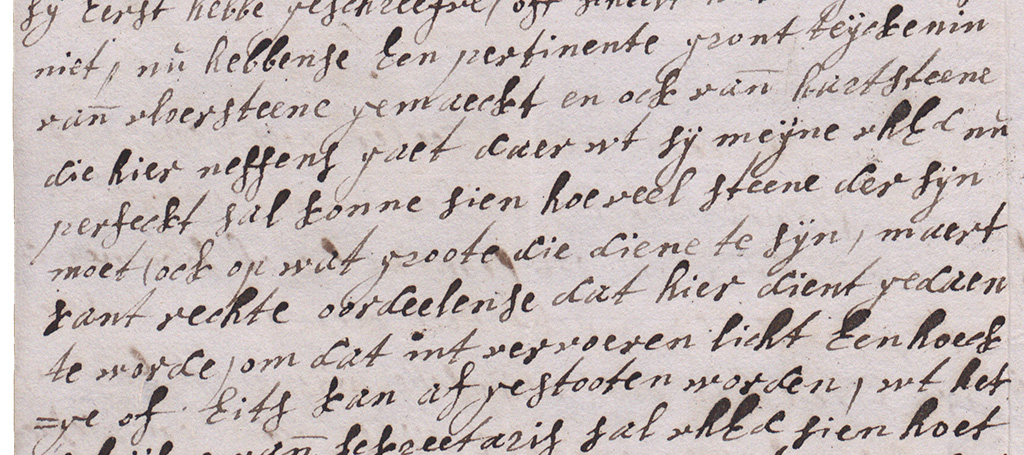 sy Eerst hebbe geschreefve, off
niet, nu hebbense Een pertinente gront teijckenin
van vloersteene gemaeckt en ock van hartsteene
die hier neffens gaet daer wt sy meijne vhEd nu
perfeckt sal konne sien hoe veel steene der syn
moet, ock op wat groote die diene te syn, maert
kant rechte oordeelense dat hier dient gedaen
te worde, om dat int vervoeren licht Een hoeck
=ge of Eits kan af gestooten worden, wt het
van sekreetaris sal vhEd sien hoet